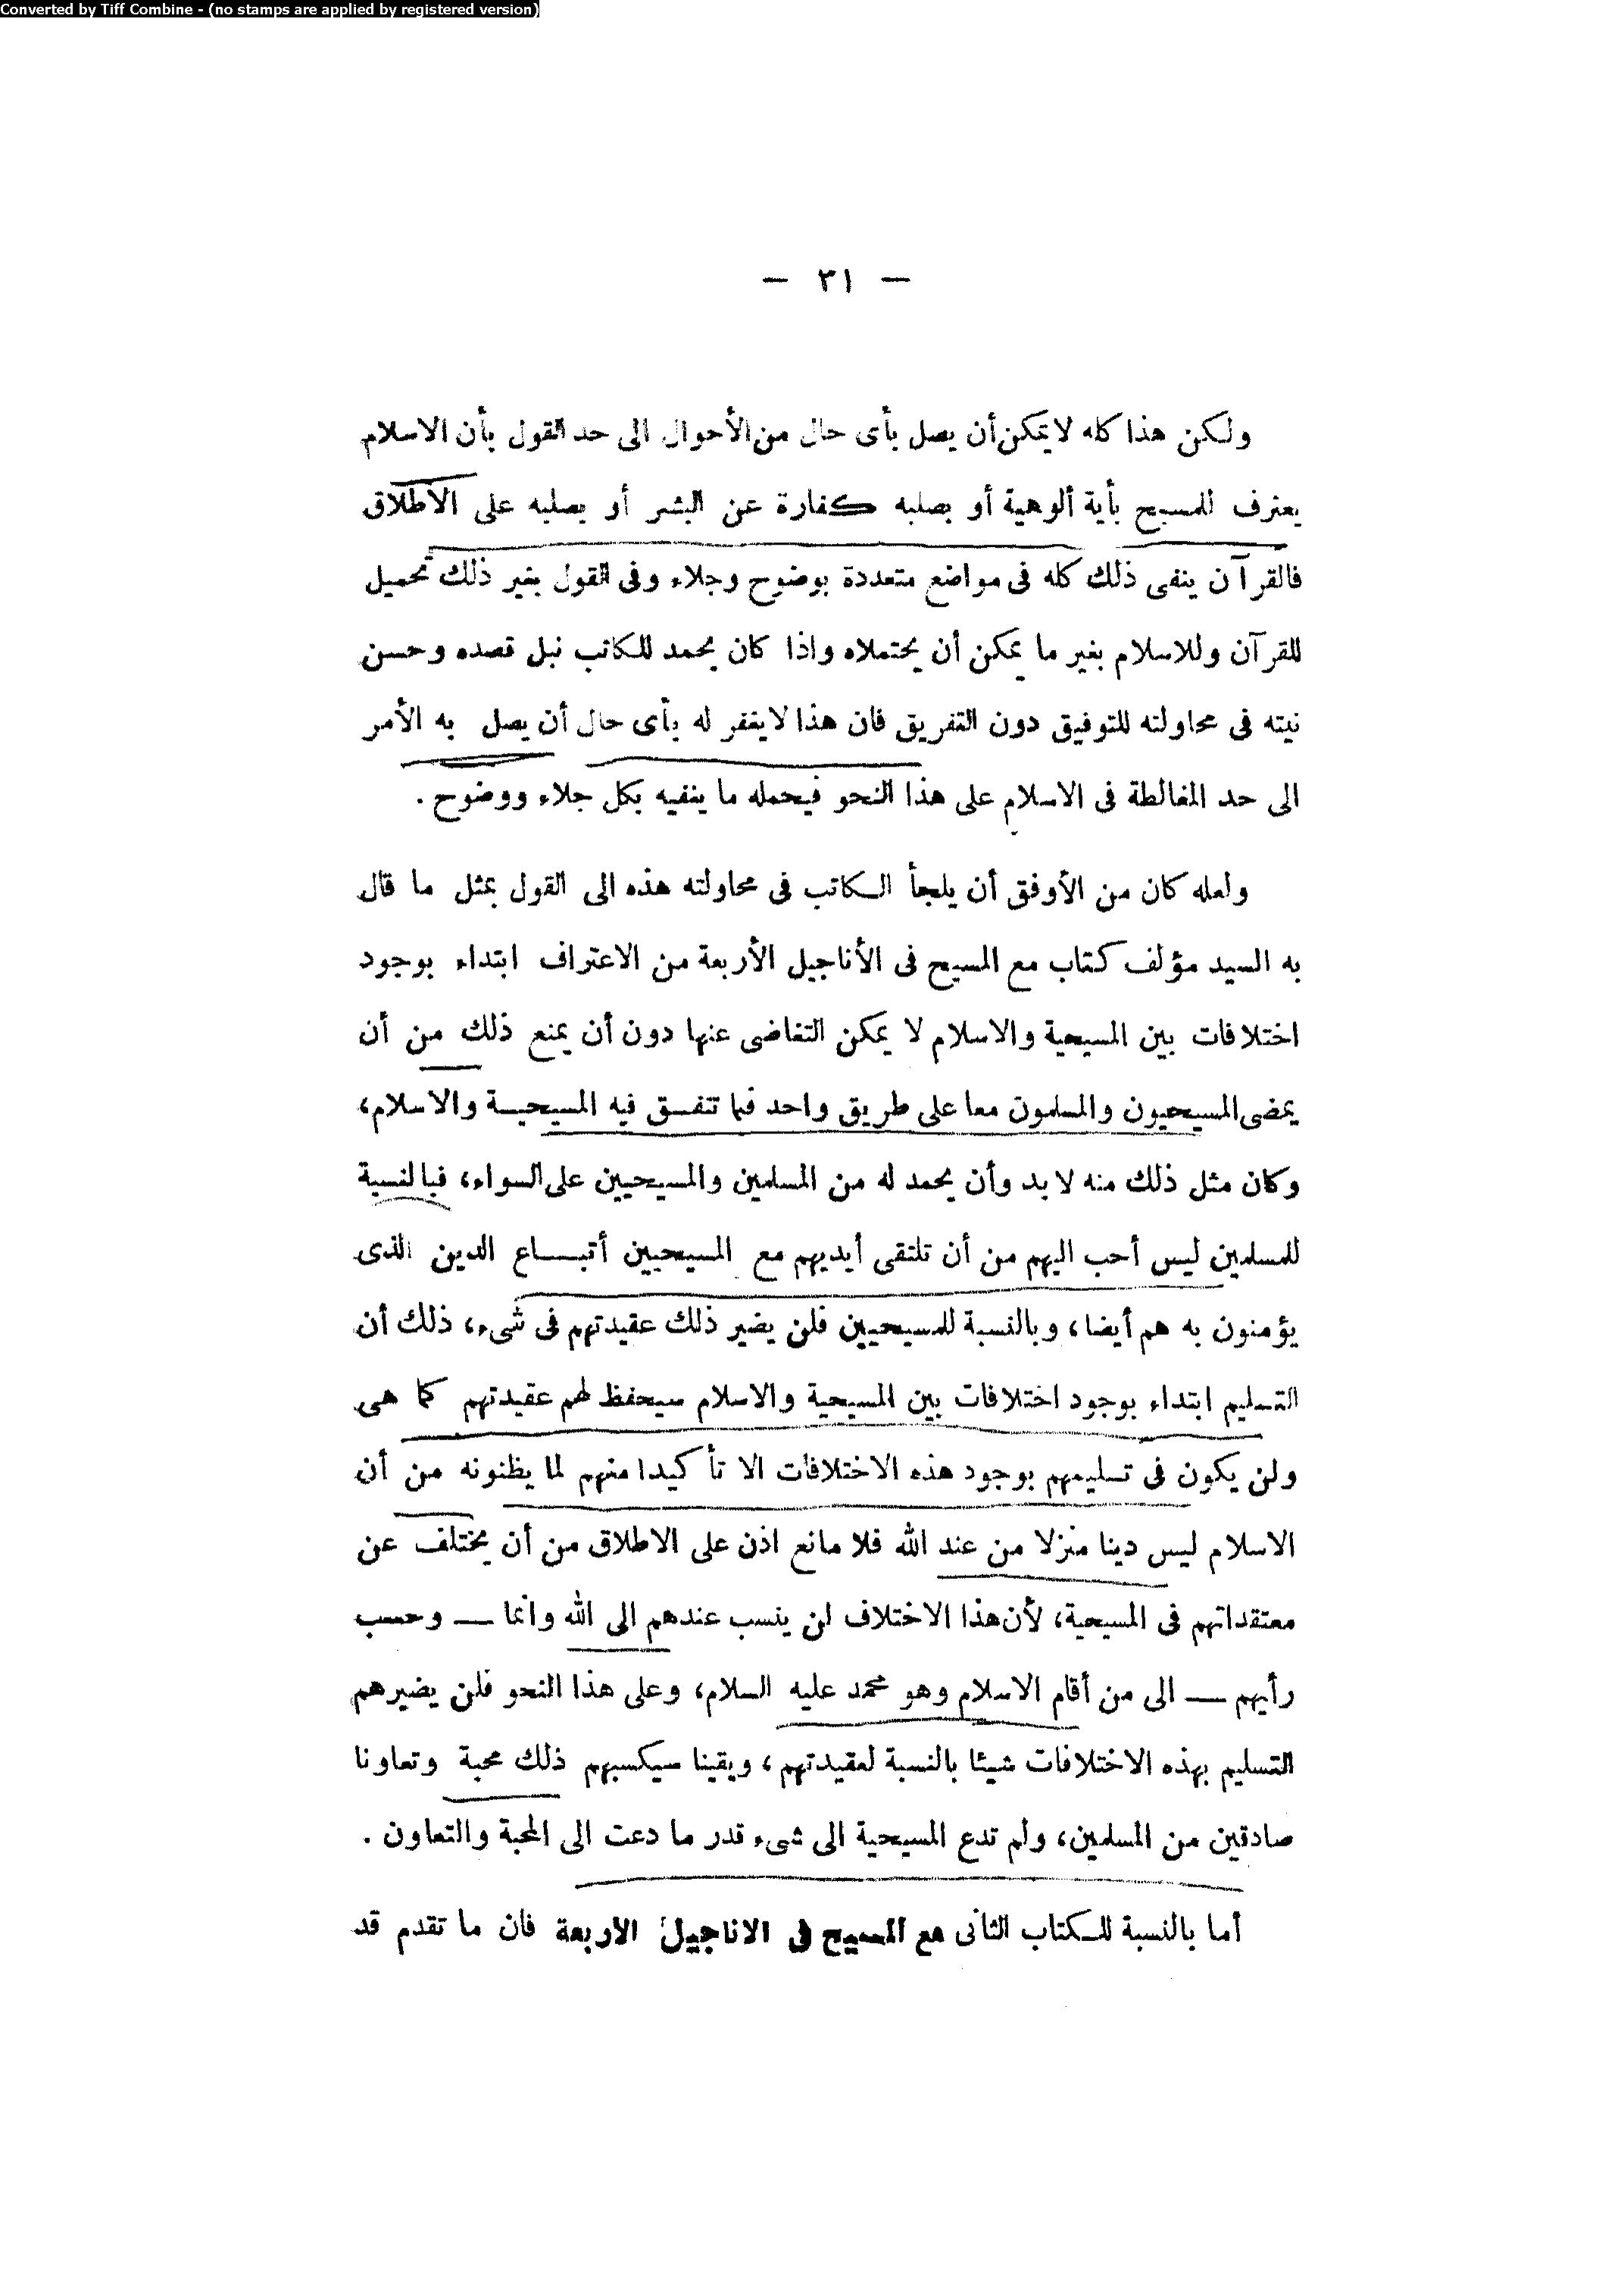 Converted by Tiff Combine - (no stamps are applied by registered version)
— ٣١ —
ولكن هذا كله لا يمكن أن يصل بأى حال من الأحوال الى حد القول بأن الاسلام
يعترف للمسيح بأية ألوهية أو بصلبه كفارة عن البشر أو بصلبه على الاطلاق
فالقرآن ينفى ذلك كله فى مواضع متعددة بوضوح وجلاء وفى القول بغير ذلك تحميل
للقرآن وللاسلام بغير ما يمكن أن يحتملاه واذا كان يحمد للكاتب نبل قصده وحسن
نيته فى محاولته للتوفيق دون التفريق فان هذا لا يغفر له بأى حال أن يصل به الأمر
الى حد المغالطة فى الاسلام على هذا النحو فيحمله ما ينفيه بكل جلاء ووضوح .
ولعله كان من الأوفق أن يلجأ الكاتب فى محاولته هذه الى القول بمثل ما قال
به السيد مؤلف كتاب مع المسيح فى الأناجيل الأربعة من الاعتراف ابتداء بوجود
اختلافات بين المسيحية والاسلام لا يمكن التغاضى عنها دون أن يمنع ذلك من أن
يمضى المسيحيون والمسلمون معا على طريق واحد فيما تتفق فيه المسيحية والاسلام،
وكان مثل ذلك منه لا بد وأن يحمد له من المسلمين والمسيحيين على السواء، فبالنسبة
للمسلمين ليس أحب اليهم من أن تلتقى أيديهم مع المسيحيين أتباع الدين الذى
يؤمنون به هم أيضا، وبالنسبة للمسيحيين فلن يضير ذلك عقيدتهم فى شىء، ذلك أن
التسليم ابتداء بوجود اختلافات بين المسيحية والاسلام سيحفظ لهم عقيدتهم كما هى
ولن يكون فى تسليمهم بوجود هذه الاختلافات الا تأكيدا منهم لما يظنونه من أن
الاسلام ليس دينا منزلا من عند الله فلا مانع اذن على الاطلاق من أن يختلف عن
معتقداتهم فى المسيحية، لأن هذا الاختلاف لن ينسب عندهم الى الله وانما — وحسب
رأيهم — الى من أقام الاسلام وهو محمد عليه السلام، وعلى هذا النحو فلن يضيرهم
التسليم بهذه الاختلافات شيئا بالنسبة لعقيدتهم، ويقينا سيكسبهم ذلك محبة وتعاونا
صادقين من المسلمين، ولم تدع المسيحية الى شىء قدر ما دعت الى المحبة والتعاون .
أما بالنسبة للكتاب الثانى مع المسيح فى الاناجيل الأربعة فان ما تقدم قد